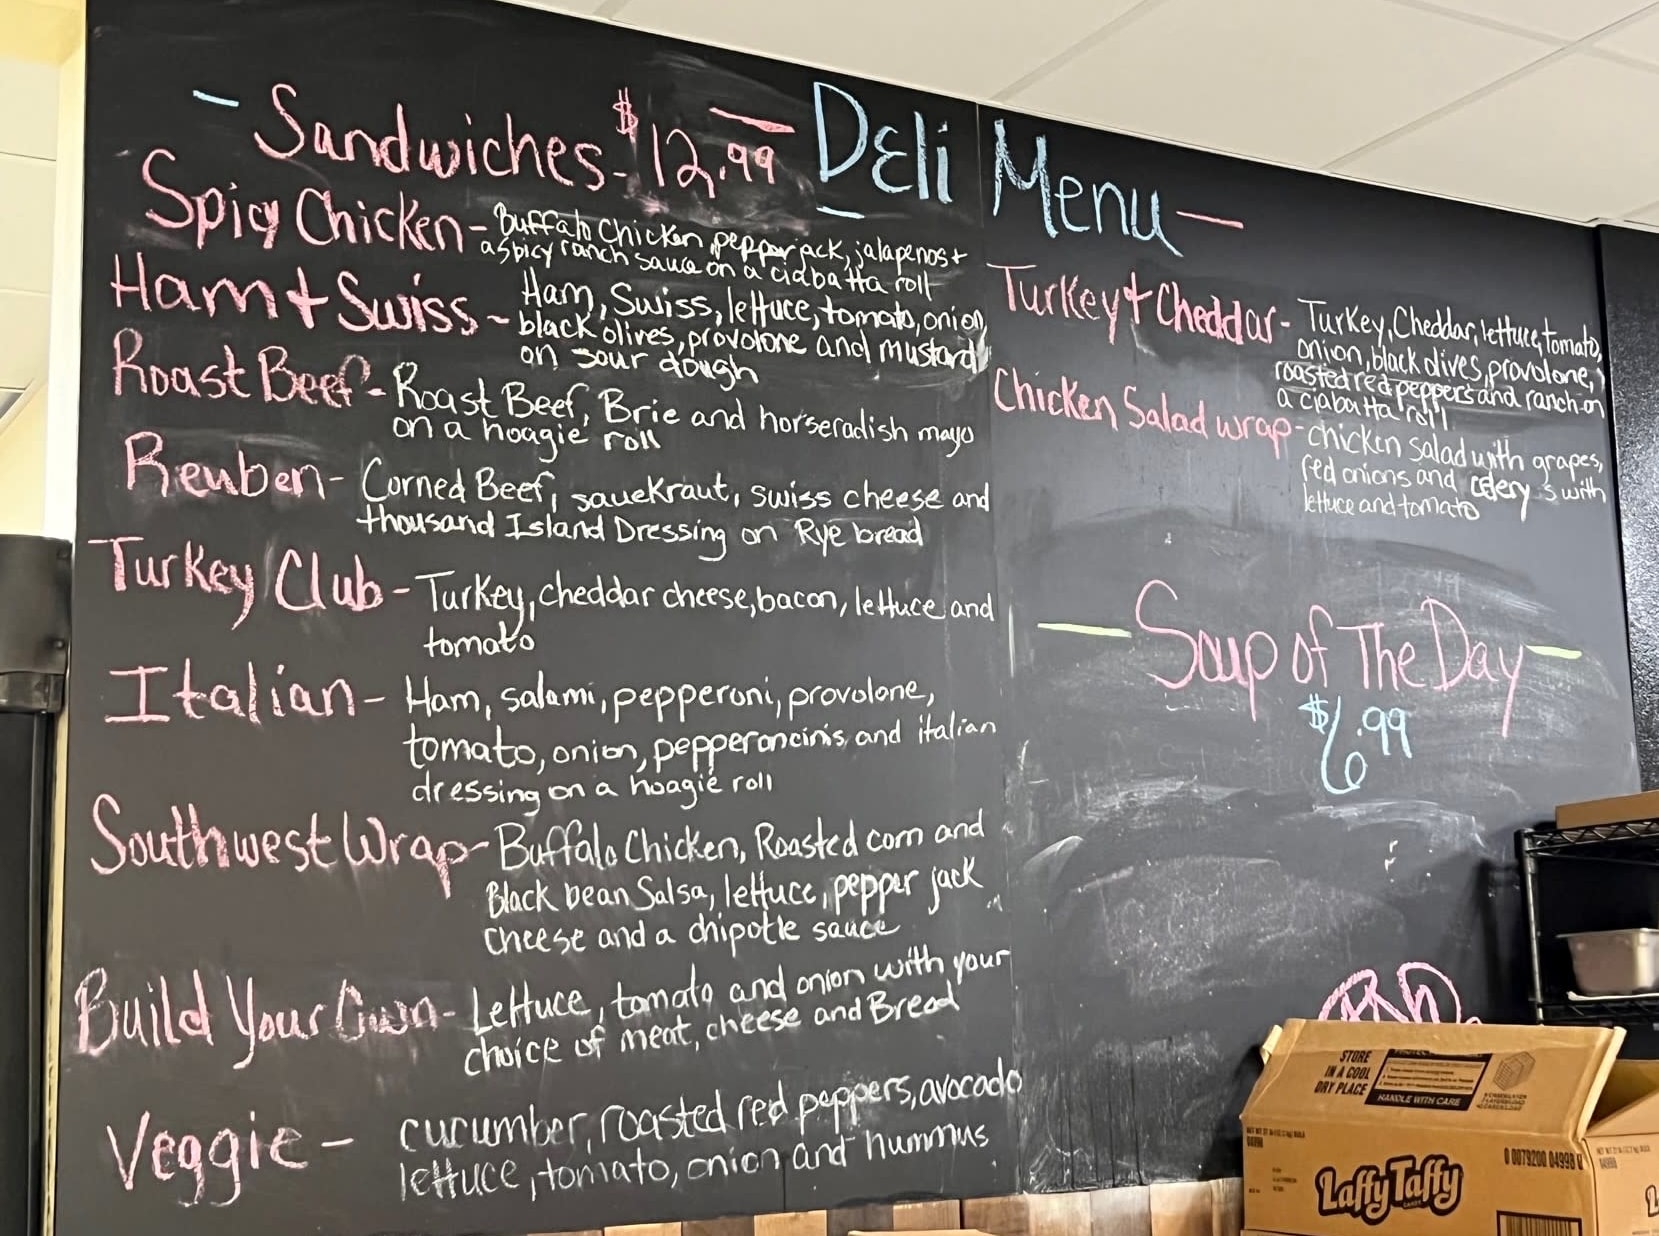 - Sandwiches - $12.99 -
Deli Menu -
Spicy Chicken - Buffalo Chicken, pepper jack, jalapenos +
a spicy ranch sauce on a ciabatta roll
Ham + Swiss - Ham, Swiss, lettuce, tomato, onion,
black olives, provolone and mustard
on sour dough
Roast Beef - Roast Beef, Brie and horseradish mayo
on a hoagie roll
Reuben - Corned Beef, sauekraut, swiss cheese and
thousand Island Dressing on Rye bread
Turkey Club - Turkey, cheddar cheese, bacon, lettuce and
tomato
Italian - Ham, salami, pepperoni, provolone,
tomato, onion, pepperoncinis, and italian
dressing on a hoagie roll
Southwest Wrap - Buffalo Chicken, Roasted corn and
Black bean Salsa, lettuce, pepper jack
cheese and a chipotle sauce
Build Your Own - Lettuce, tomato and onion with your
choice of meat, cheese and Bread
Veggie - cucumber, roasted red peppers, avocado
lettuce, tomato, onion and hummus
Turkey + Cheddar - Turkey, Cheddar, lettuce, tomato,
onion, black olives, provolone,
roasted red peppers and ranch on
a ciabatta roll
Chicken Salad wrap - chicken salad with grapes,
red onions and celery s with
lettuce and tomato
- Soup of The Day -
$6.99
STORE
IN A COOL
DRY PLACE
HANDLE WITH CARE
0 0079200 04998
Laffy Taffy